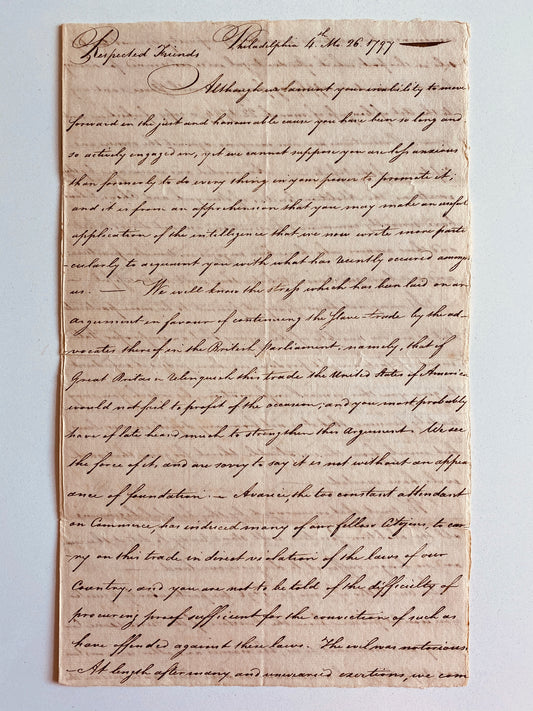 Respected Friends Philadelphia 4.th Mo 26. 1797
Although we lament your inability to move
forward in the just and honourable cause you have been so long and
so actively engaged in, yet we cannot suppose you are less anxious
than formerly to do every thing in your power to promote it;
and it is from an apprehension that you may make an useful
application of the intelligence that we now write more parti
-cularly to acquaint you with what has recently occured among
us. — We well know the stress which has been laid on an
argument in favour of continuing the Slave-trade by the ad-
vocates thereof in the British parliament, namely, that if
Great Britain relinquish this trade the United States of America
would not fail to profit of the occasion, and you most probably
have of late heard much to strengthen this argument. We see
the force of it, and are sorry to say it is not without an appea
ance of foundation — Avarice, the too constant attendant
on Commerce, has induced many of our fellow Citizens, to car
ry on this trade in direct violation of the laws of our
Country, and you are not to be told of the difficulty of
procuring proof sufficient for the conviction of such as
have offended against these laws. The evil was notorious.
— At length after many and unwearied exertions, we com